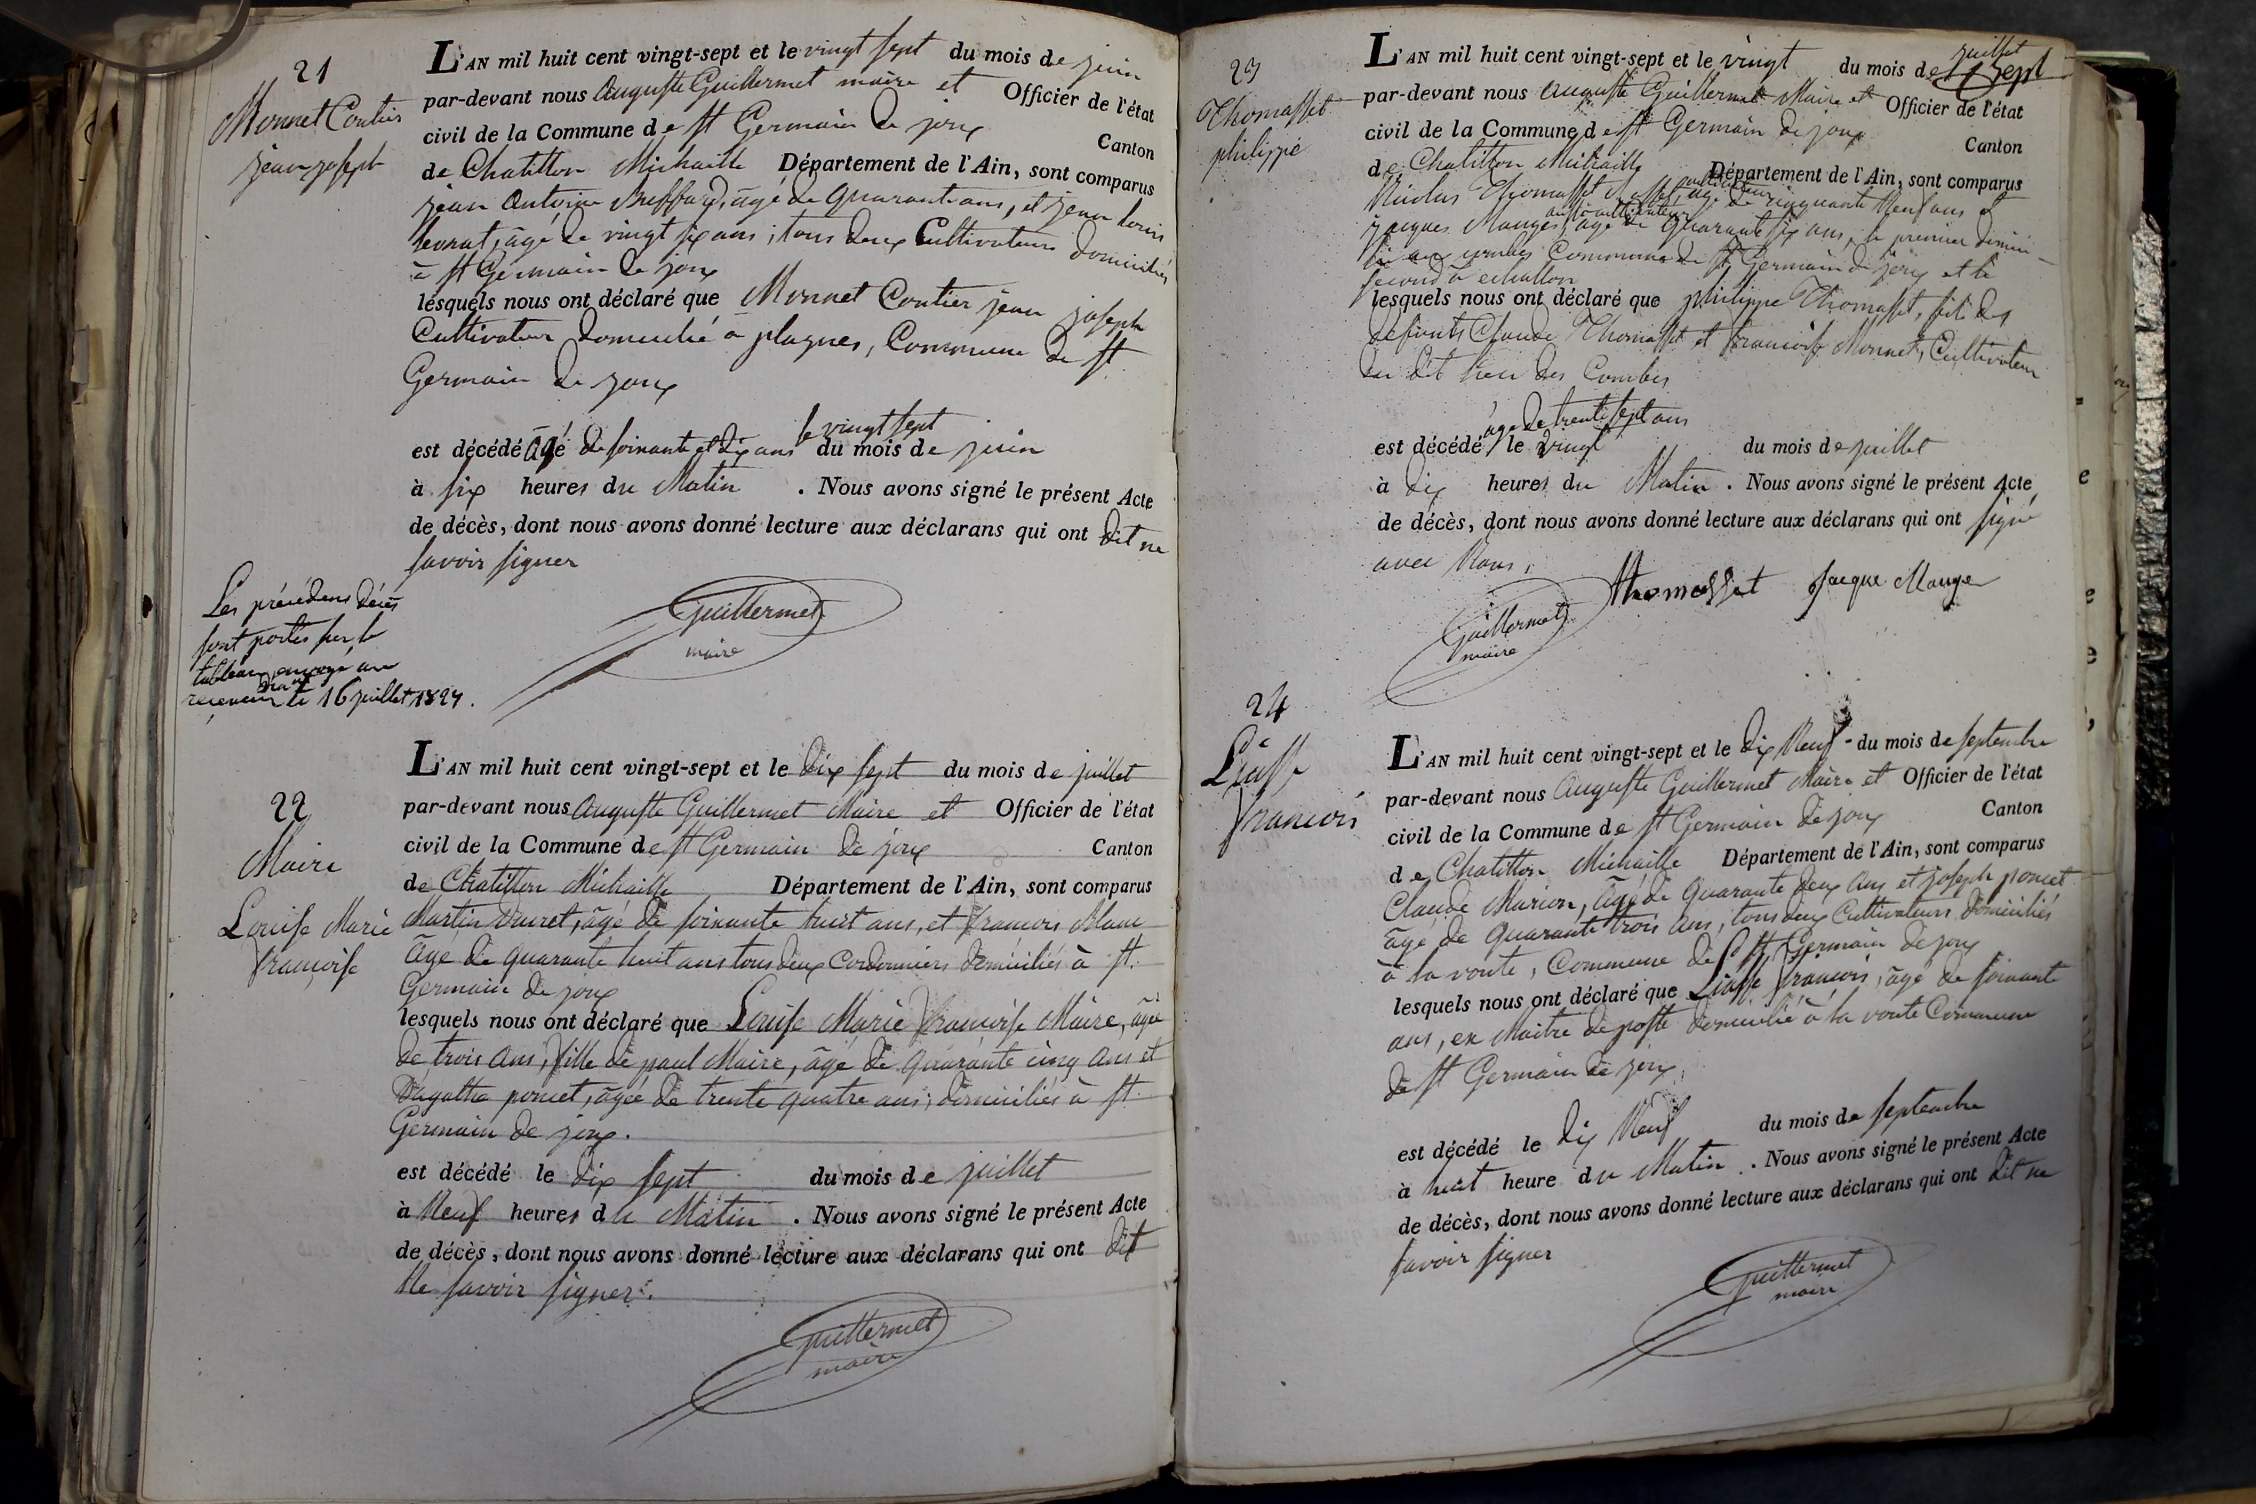 21
Monnet Coutier
jean joseph
L'AN mil huit cent vingt-sept et le vingt sept du mois de juin
par-devant nous Auguste Guillermet maire et Officier de l'état
civil de la Commune de St Germain de joux Canton
de Chatillon Michaille Département de l'Ain, sont comparus
jean Antoine Buffard, âgé de quarante ans, et jean louis
levrat, âgé de vingt six ans, tous deux Cultivateurs domiciliés
à St Germain de joux
lesquels nous ont déclaré que Monnet Coutier jean joseph
Cultivateur domicilié à plagnes, Commune de St
Germain de joux
le vingt sept
est décédé âgé de soixante et dix ans du mois de juin
à six heures du Matin . Nous avons signé le présent Acte
de décès, dont nous avons donné lecture aux déclarans qui ont dit ne
savoir signer
Guillermet
maire
Les précédens décès
sont portés sur le
tableau envoyé au
receveur le 16 juillet 1827.
22
Maire
Louise Marie
françoise
L'AN mil huit cent vingt-sept et le dix sept du mois de juillet
par-devant nous Auguste Guillermet Maire et Officier de l'état
civil de la Commune de St Germain de joux Canton
de Chatillon Michaille Département de l'Ain, sont comparus
Martin âgé de soixante huit ans, et françois Blanc
âgé de quarante huit ans tous deux Cordonniers domiciliés à St
Germain de joux
lesquels nous ont déclaré que Louise Marie françoise Maire, âgée
de trois ans, fille de paul Maire, âgé de quarante cinq ans et
D'agathe poncet, âgée de trente quatre ans, domiciliés à St
Germain de joux.
est décédé le dix sept du mois de juillet
à Neuf heures du Matin . Nous avons signé le présent Acte
de décès, dont nous avons donné lecture aux déclarans qui ont dit
Ne savoir signer.
Guillermet
maire
23
Thomasset
philippe
L'AN mil huit cent vingt-sept et le vingt du mois de juillet
par-devant nous Auguste Guillermet Maire et Officier de l'état
civil de la Commune de St Germain de joux Canton
de Chatillon Michaille Département de l'Ain, sont comparus
Nicolas Thomasset cultivateur âgé de cinquante Neuf ans et
jacques Manger, aussi cultivateur âgé de quarante six ans, le premier domici-
lié aux combes Commune de St Germain de joux et le
second à echallon
lesquels nous ont déclaré que philippe Thomasset, fils des
défunts Claude Thomasset et françoise Monnet, Cultivateur
du dit lieu des Combes
âgé de trente sept ans
est décédé le vingt du mois de juillet
à dix heures du Matin . Nous avons signé le présent Acte
de décès, dont nous avons donné lecture aux déclarans qui ont signé
avec Nous.
thomasset Jacque Manger
Guillermet
maire
24
Liasse
françois
L'AN mil huit cent vingt-sept et le dix Neuf du mois de septembre
par-devant nous Auguste Guillermet Maire et Officier de l'état
civil de la Commune de St Germain de joux Canton
de Chatillon Michaille Département de l'Ain, sont comparus
Claude Marion, âgé de quarante deux ans et joseph poncet
âgé de quarante trois ans, tous deux Cultivateurs domiciliés
à la voute, Commune de St Germain de joux
lesquels nous ont déclaré que Liasse françois, âgé de soixante
ans, ex Maitre de poste domicilié à la voute Commune
de St Germain de joux,
est décédé le dix Neuf du mois de septembre
à huit heure du Matin . Nous avons signé le présent Acte
de décès, dont nous avons donné lecture aux déclarans qui ont dit ne
savoir signer
Guillermet
maire